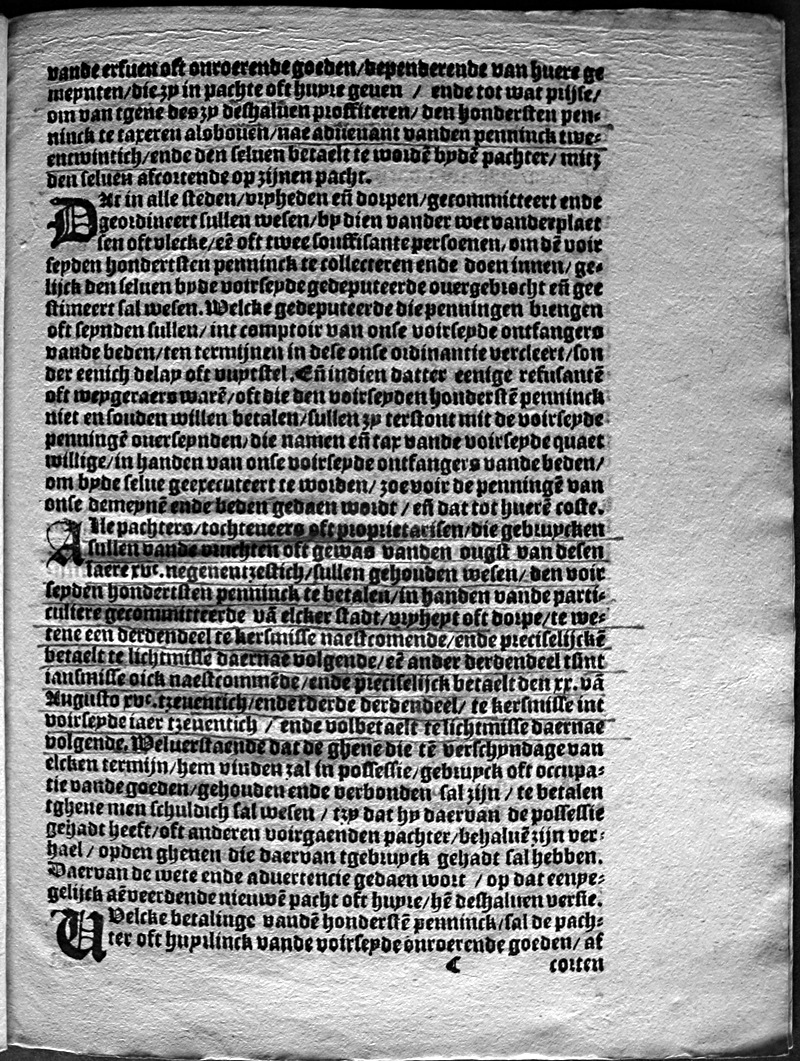 vande erfuen oft onroerende goeden/dependerende van huere ge
meynten/die zy in pachte oft huyre geuen / ende tot wat prijse/
om van tgene des zy deshalũen proffiteren/ den hondersten pen-
ninck te taxeren alsbouen/nae aduenant vanden penninck twe-
entwintich/ende den seluen betaelt te wordẽ bydẽ pachter/ mitz
den seluen afcortende op zijnen pacht.
DAt in alle steden/vryheden eñ dorpen/gecommitteert ende
geordineert sullen wesen/by dien vander wet vanderplaet
sen oft vlecke/eẽ oft twee souffisante persoenen/om dẽ voir
seyden hondertsten penninck te collecteren ende doen innen/ ge-
lijck den seluen byde voirseyde gedeputeerde ouergebrocht eñ gee
stimeert sal wesen. Welcke gedeputeerde die penningen brengen
oft seynden sullen/ int comptoir van onse voirseyde ontfangers
vande beden/ten termijnen in dese onse ordinantie vercleert/son
der eenich delay oft vuytstel. Eñ indien datter eenige refusantẽ
oft weygeraers warẽ/oft die den voirseyden honderstẽ penninck
niet en souden willen betalen/sullen zy terstont mit de voirseyde
penningẽ ouerseynden/die namen eñ tax vande voirseyde quaet
willige/in handen van onse voirseyde ontfangers vande beden/
om byde selue geexecuteert te worden/ zoe voir de penningẽ van
onse demeynẽ ende beden gedaen wordt / eñ dat tot huerẽ coste.
Alle pachters/tochteneers oft proprietarisen/die gebruycken
sullen vande vruchten oft gewas vanden ougst van desen
Iaere xvc. negenentzestich/sullen gehouden wesen/ den voir
seyden hondertsten penninck te betalen/in handen vande parti-
culiere gecommitteerde vã elcker stadt/vryheyt oft dorpe/te we-
tene een derdendeel te kersmisse naestcomende/ende preciselijckẽ
betaelt te lichtmisse daernae volgende/eẽ ander derdendeel tsint
iansmisse oick naestcommẽde/ende preciselijck betaelt den xx. vã
Augusto xvc. tzeuentich/ende tderde derdendeel/ te kersmisse int
voirseyde iaer tzeuentich / ende volbetaelt te lichtmisse daernae
volgende. Weluerstaende dat de ghene die tẽ verschyndage van
elcken termijn/hem vinden zal in possessie/gebruyck oft occupa-
tie vande goeden/gehouden ende verbonden sal zijn / te betalen
tghene men schuldich sal wesen / tzy dat hy daervan de possessie
gehadt heeft/oft anderen voirgaenden pachter/behaluẽ zijn ver-
hael / opden ghenen die daervan tgebruyck gehadt sal hebben.
Daervan de wete ende aduertencie gedaen wort / op dat eenye-
gelijck aẽveerdende nieuwẽ pacht oft huyre/hẽ deshaluen versie.
VVelcke betalinge vandẽ honderstẽ penninck/sal de pach-
ter oft huyrlinck vande voirseyde onroerende goeden/ af
C corten